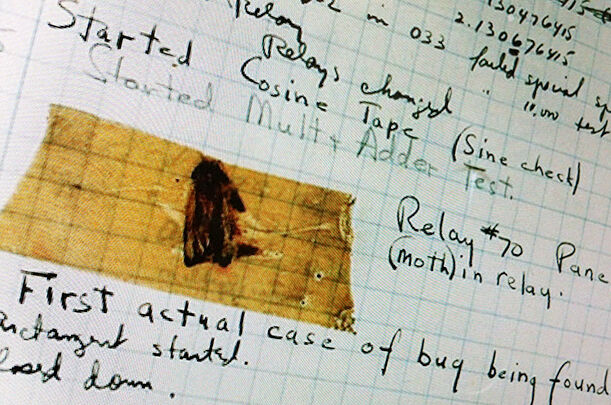 130476415
2.130676415
Relay in 033 failed special
Relay
Started Relays changed " 11,000 test
Started Cosine Tape (Sine check)
Started Mult + Adder Test.
Relay #70 Pane
(moth) in relay.
First actual case of bug being found
arctangent started.
closed down.